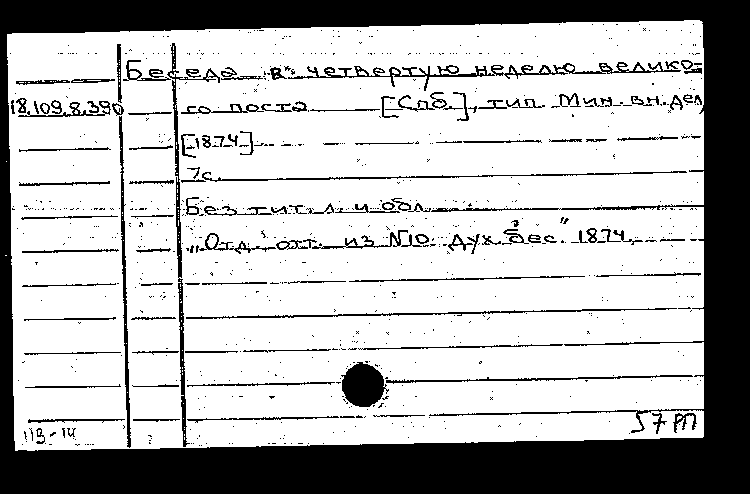 Беседа въ четвертую неделю велико-
18.109.8.390 го поста [Спб.], тип. Мин. вн. дел,
[1874]
7с.
Без тит. л. и обл.
„Отд. отт. из №10. дух. бес." 1874.
119-14 57 РП